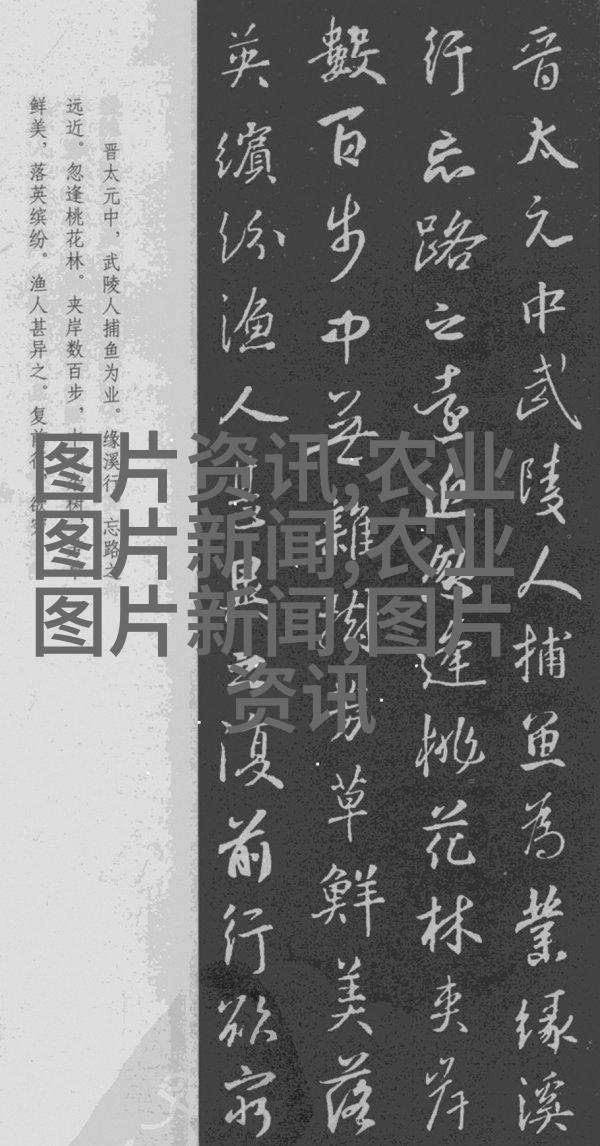 晋太元中武陵人捕鱼为業缘溪
行忘路之遠近忽逢桃花林夹岸
數百步中無雜樹芳草鮮美落
英繽紛渔人甚異之復前行欲窮
晋太元中，武陵人捕鱼为业。缘溪行，忘路之
远近。忽逢桃花林。夹岸数百步，中
鲜美，落英缤纷。渔人甚异之。复前行，欲穷
图片资讯,农业
图片新闻,农业
图片新闻,图片
资讯